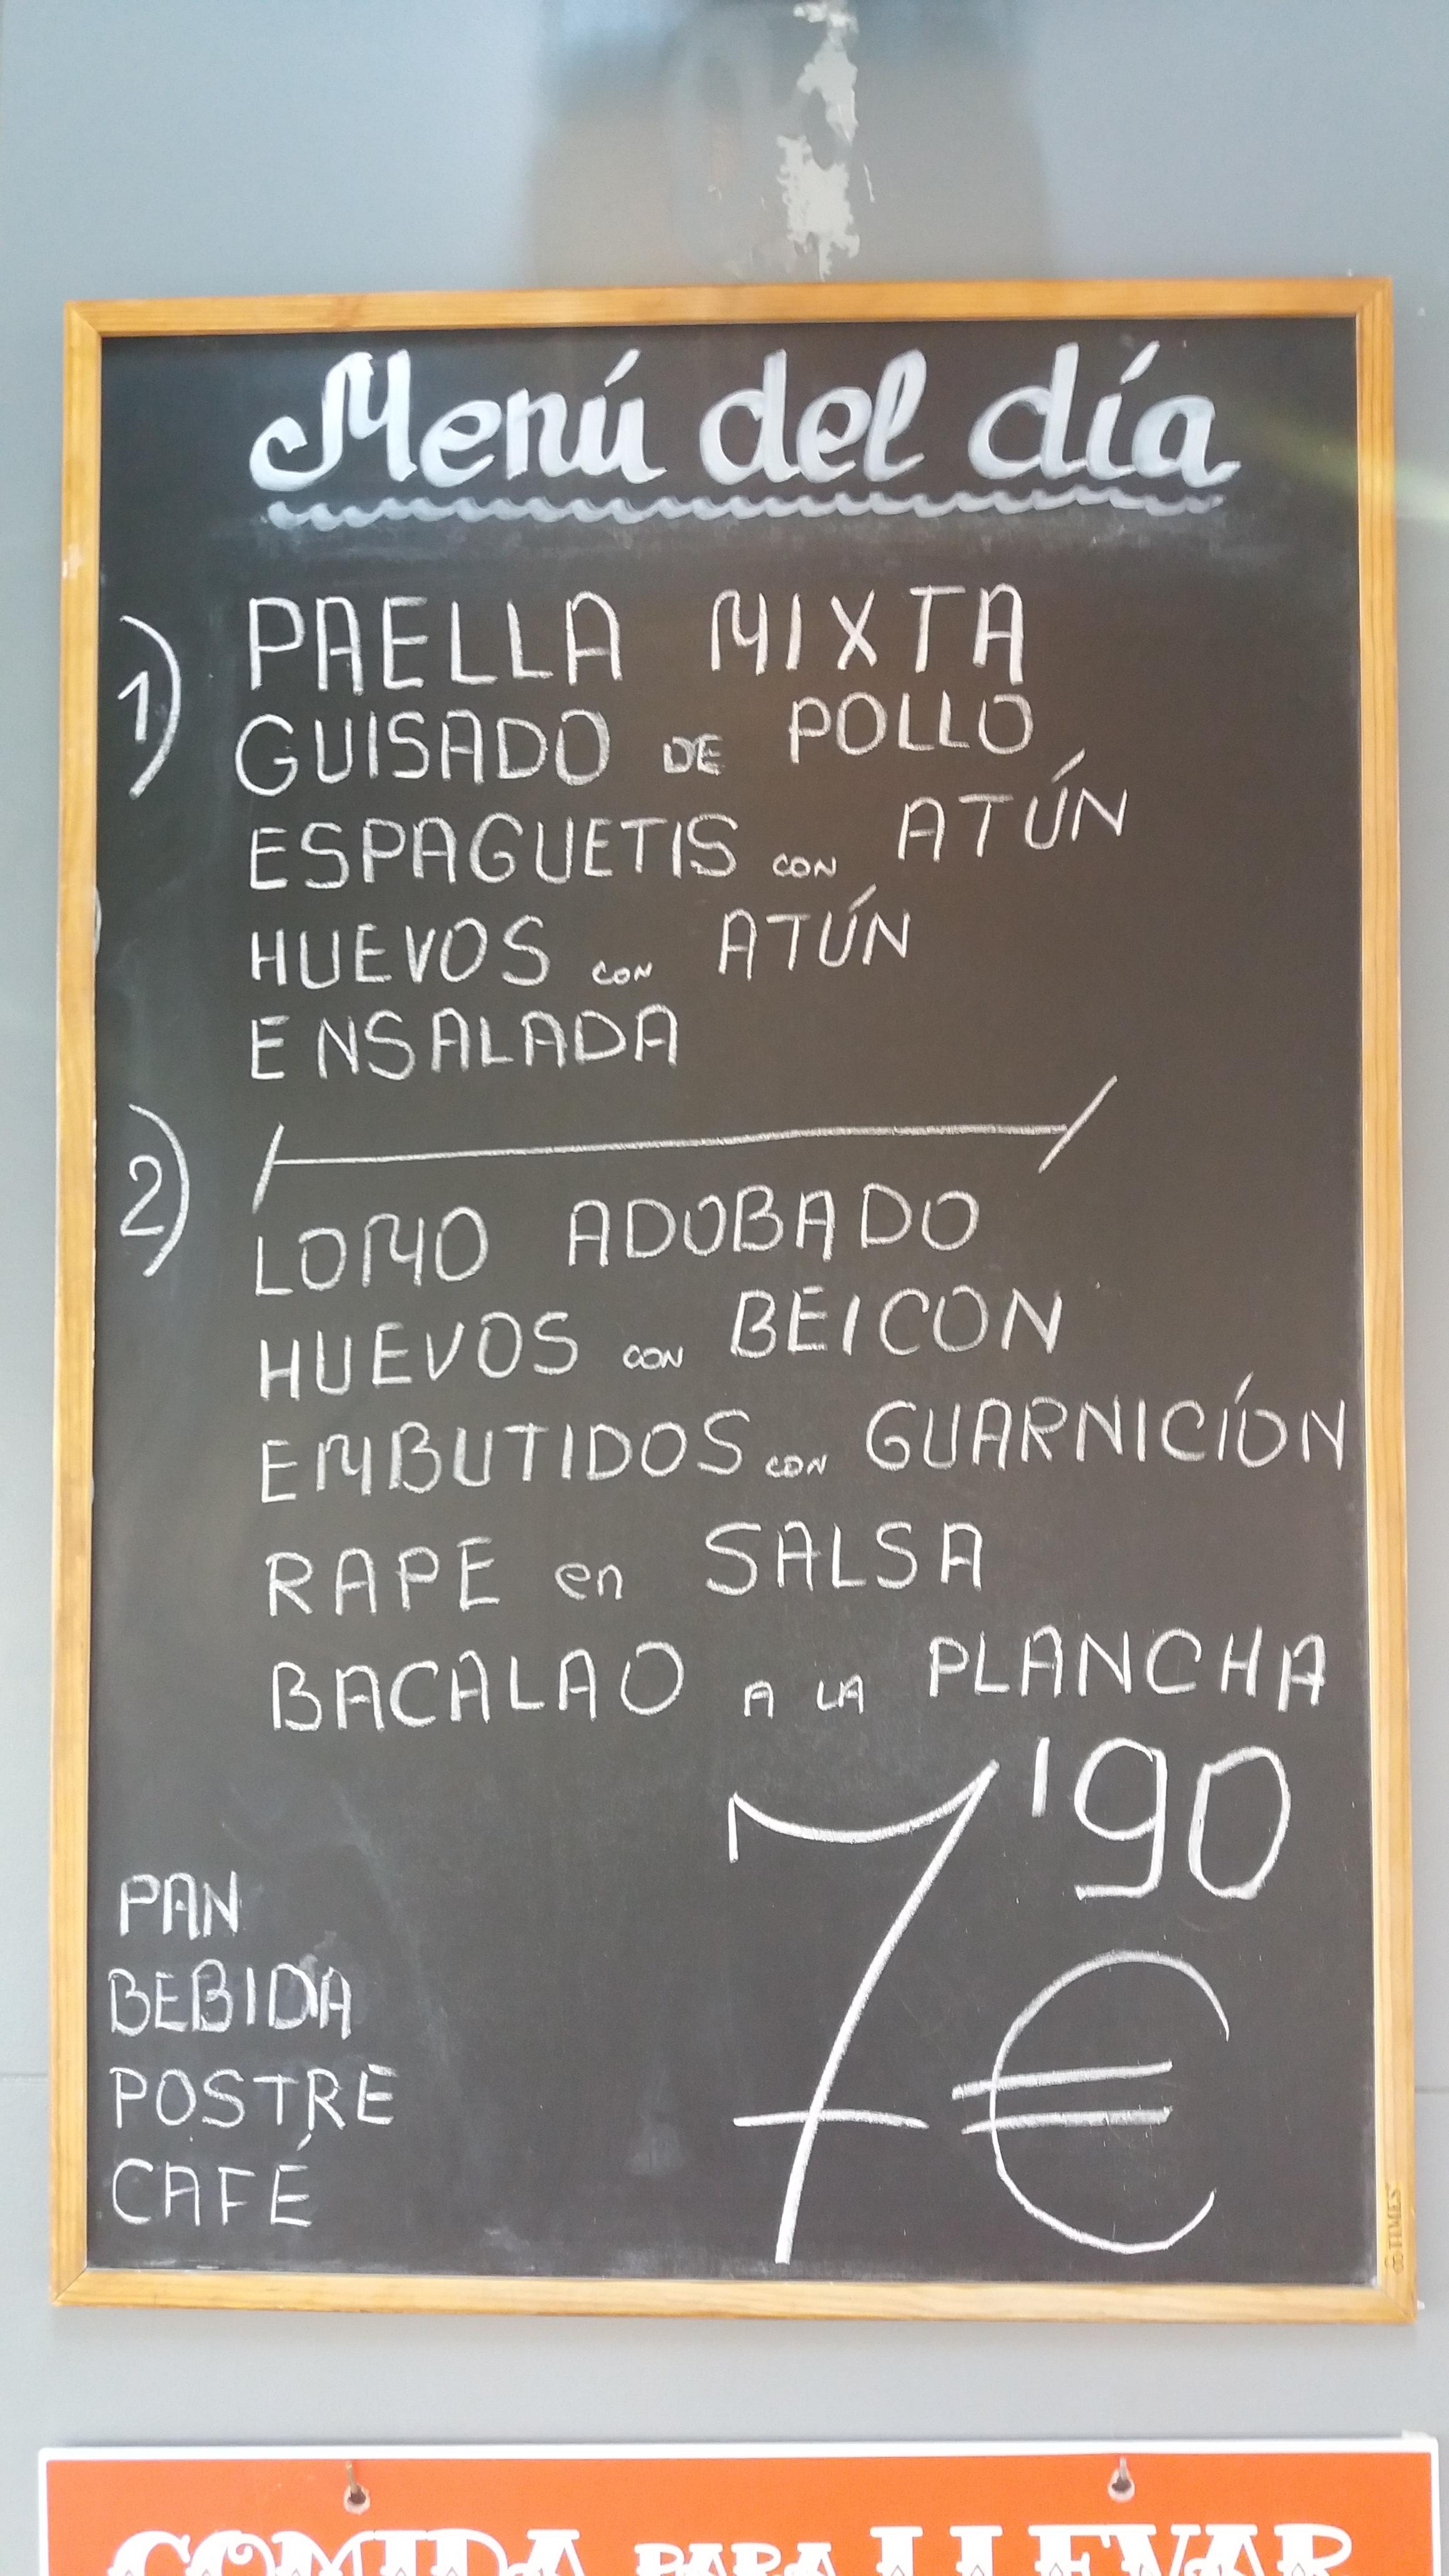 Menú del día
1) PAELLA MIXTA
GUISADO DE POLLO
ESPAGUETIS CON ATÚN
HUEVOS CON ATÚN
ENSALADA
2) LOMO ADOBADO
HUEVOS CON BEICON
EMBUTIDOS CON GUARNICÍON
RAPE en SALSA
BACALAO A LA PLANCHA
7'90 €
PAN
BEBIDA
POSTRE
CAFÉ
COMIDA PARA LLEVAR